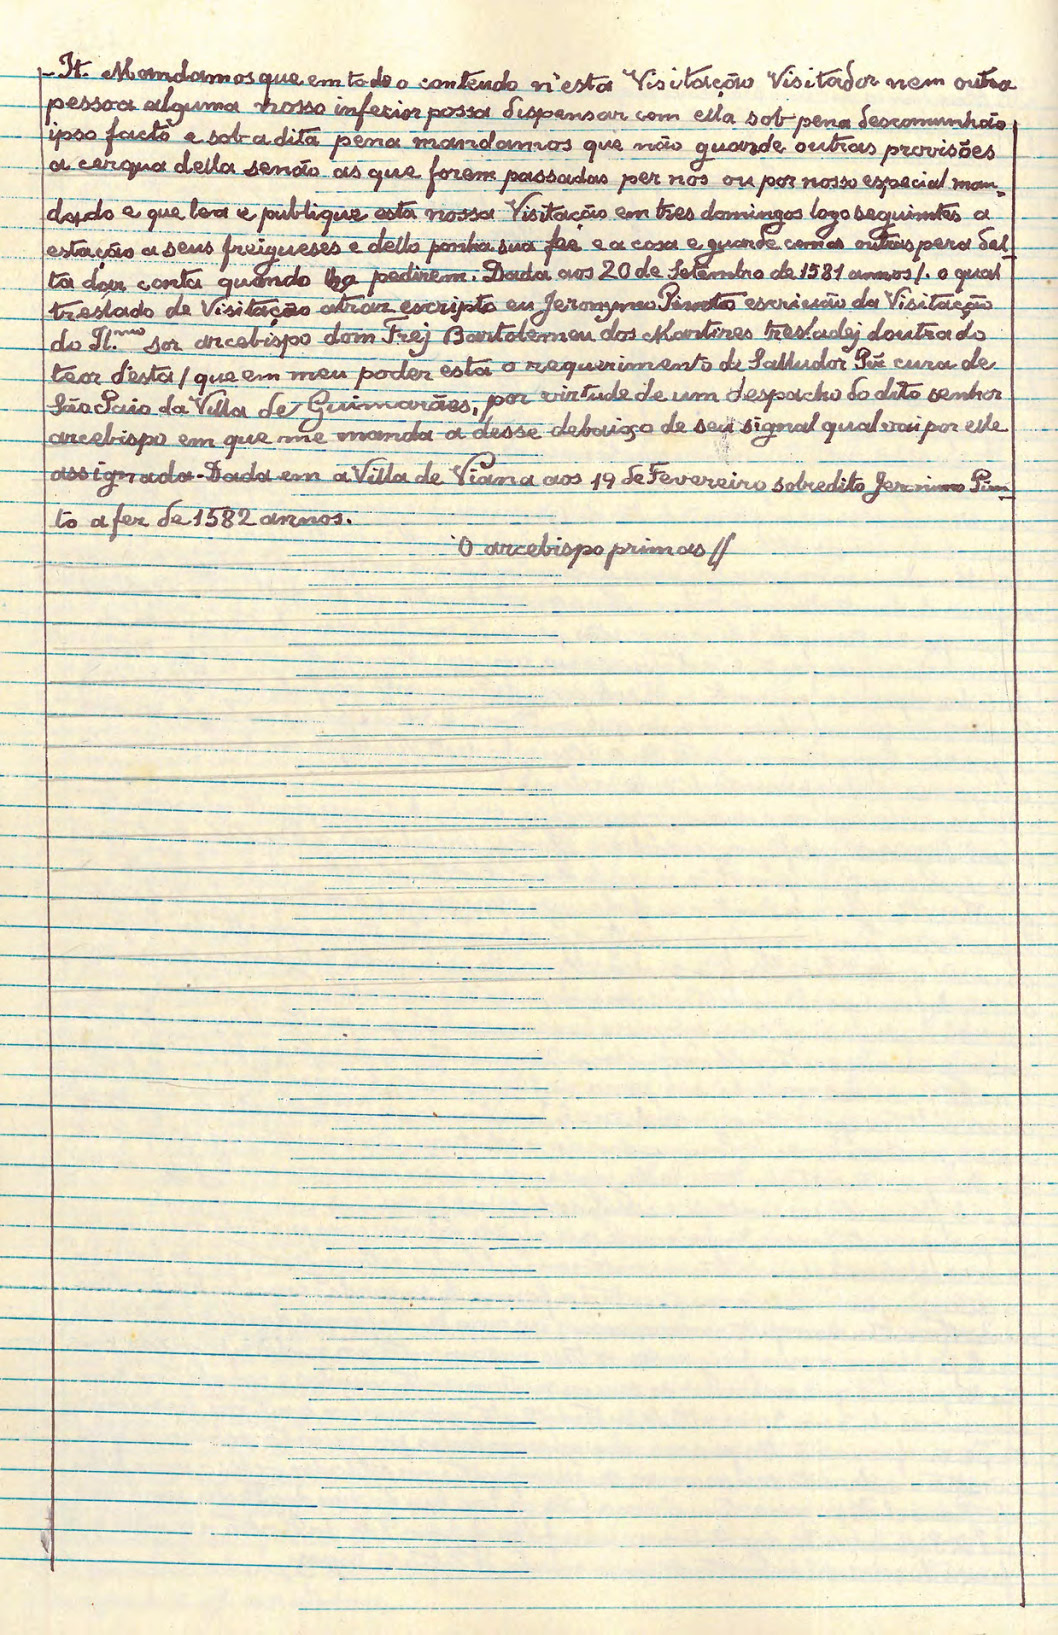 - It. Mandamos que em todo o contendo n'esta Visitação Visitador nem outra
pessoa alguma nosso inferior possa dispensar com ella sob pena descomunhão
ipso facto e sob a dita pena mandamos que não guarde outras provisões
a cerqua della senão as que forem passadas per nos ou por nosso especial man-
dado e que lea e publique esta nossa Visitação em tres domingos logo seguintes a
estação a seus freigueses e dello ponha sua feé e a cosa e guarde com as outras pera del-
ta dar conta quando lha pedirem. Dada aos 20 de Setembro de 1581 annos/. o qual
treslado de Visitação atraz escripto eu Jeronymo Pinto escrivão da Visitação
do Il.mo sor arcebispo dom Frej Bartolemeu dos Martires trestadej doutra do
teor d'esta / que em meu poder esta o requerimento de Salludor Piz cura de
São Paio da Villa de Guimarães, por virtude de um despacho do dito senhor
arcebispo em que me manda a desse debaixo de seu signal qual vai por elle
assignada - Dada em a Villa de Viana aos 19 de Fevereiro sobredito Jeronimo Pin-
to a fez de 1582 annos.
O arcebispo primas //